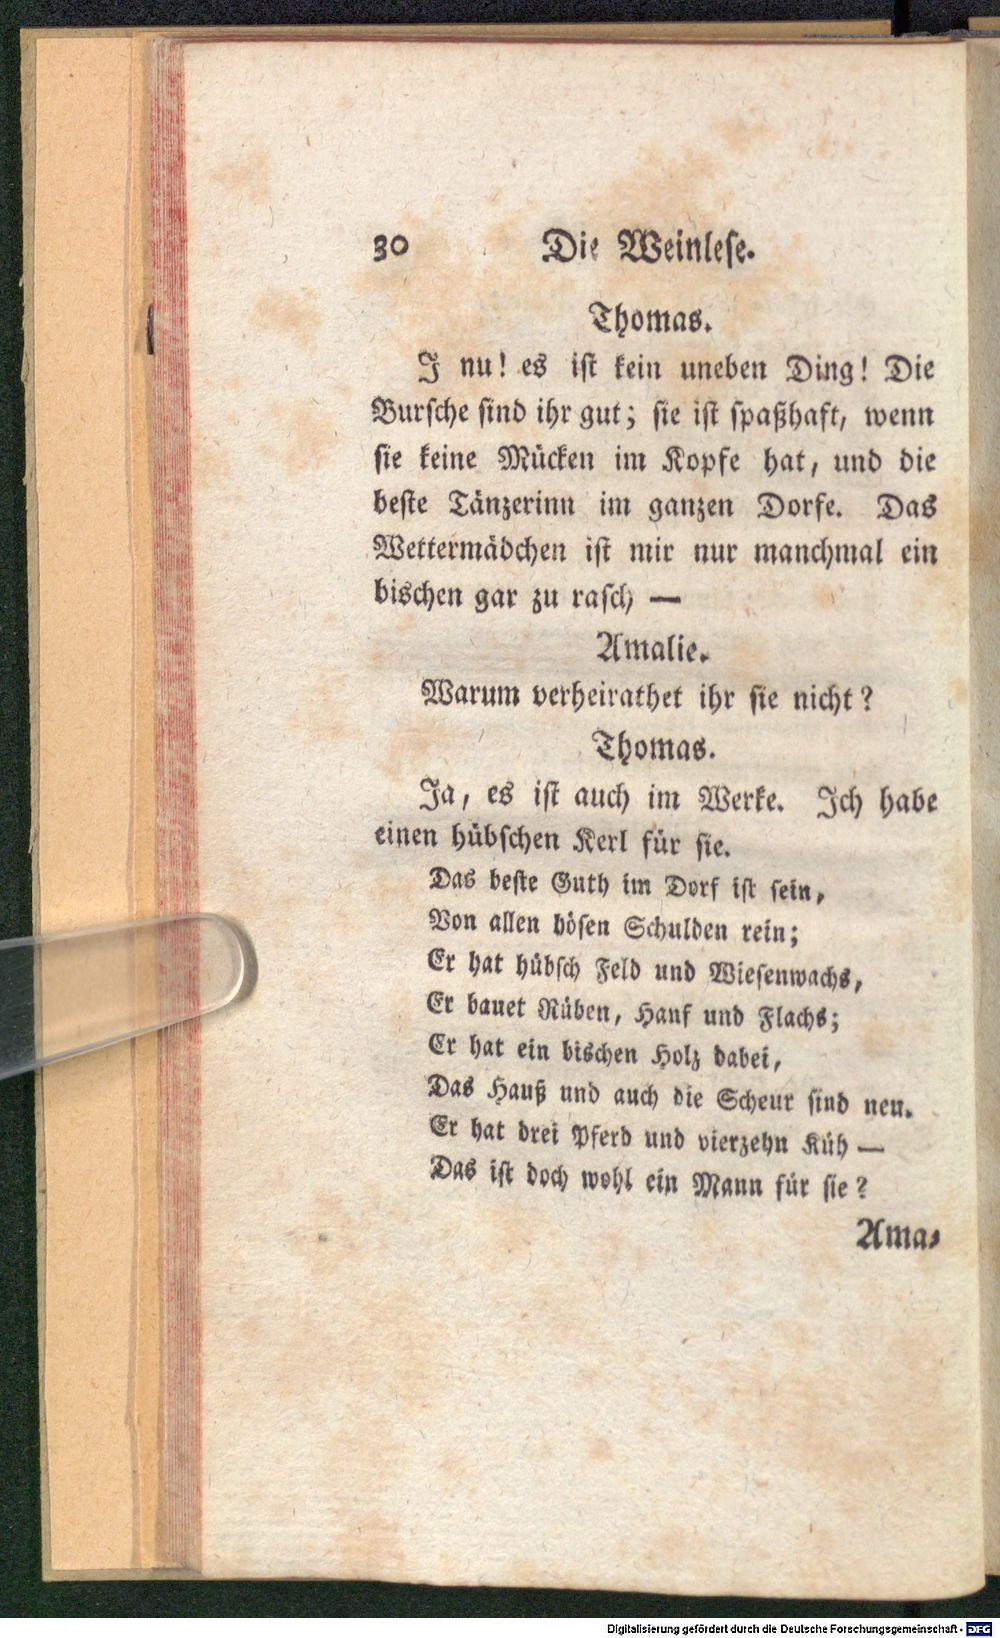 30 Die Weinlese.
Thomas.
J nu! es ist kein uneben Ding! Die
Bursche sind ihr gut; sie ist spaßhaft, wenn
sie keine Mücken im Kopfe hat, und die
beste Tänzerinn im ganzen Dorfe. Das
Wettermädchen ist mir nur manchmal ein
bischen gar zu rasch —
Amalie.
Warum verheirathet ihr sie nicht?
Thomas.
Ja, es ist auch im Werke. Ich habe
einen hübschen Kerl für sie.
Das beste Guth im Dorf ist sein,
Von allen bösen Schulden rein;
Er hat hübsch Feld und Wiesenwachs,
Er bauet Rüben, Hanf und Flachs;
Er hat ein bischen Holz dabei,
Das Hauß und auch die Scheur sind neu.
Er hat drei Pferd und vierzehn Küh —
Das ist doch wohl ein Mann für sie?
Ama-
Digitalisierung gefördert durch die Deutsche Forschungsgemeinschaft - DFG